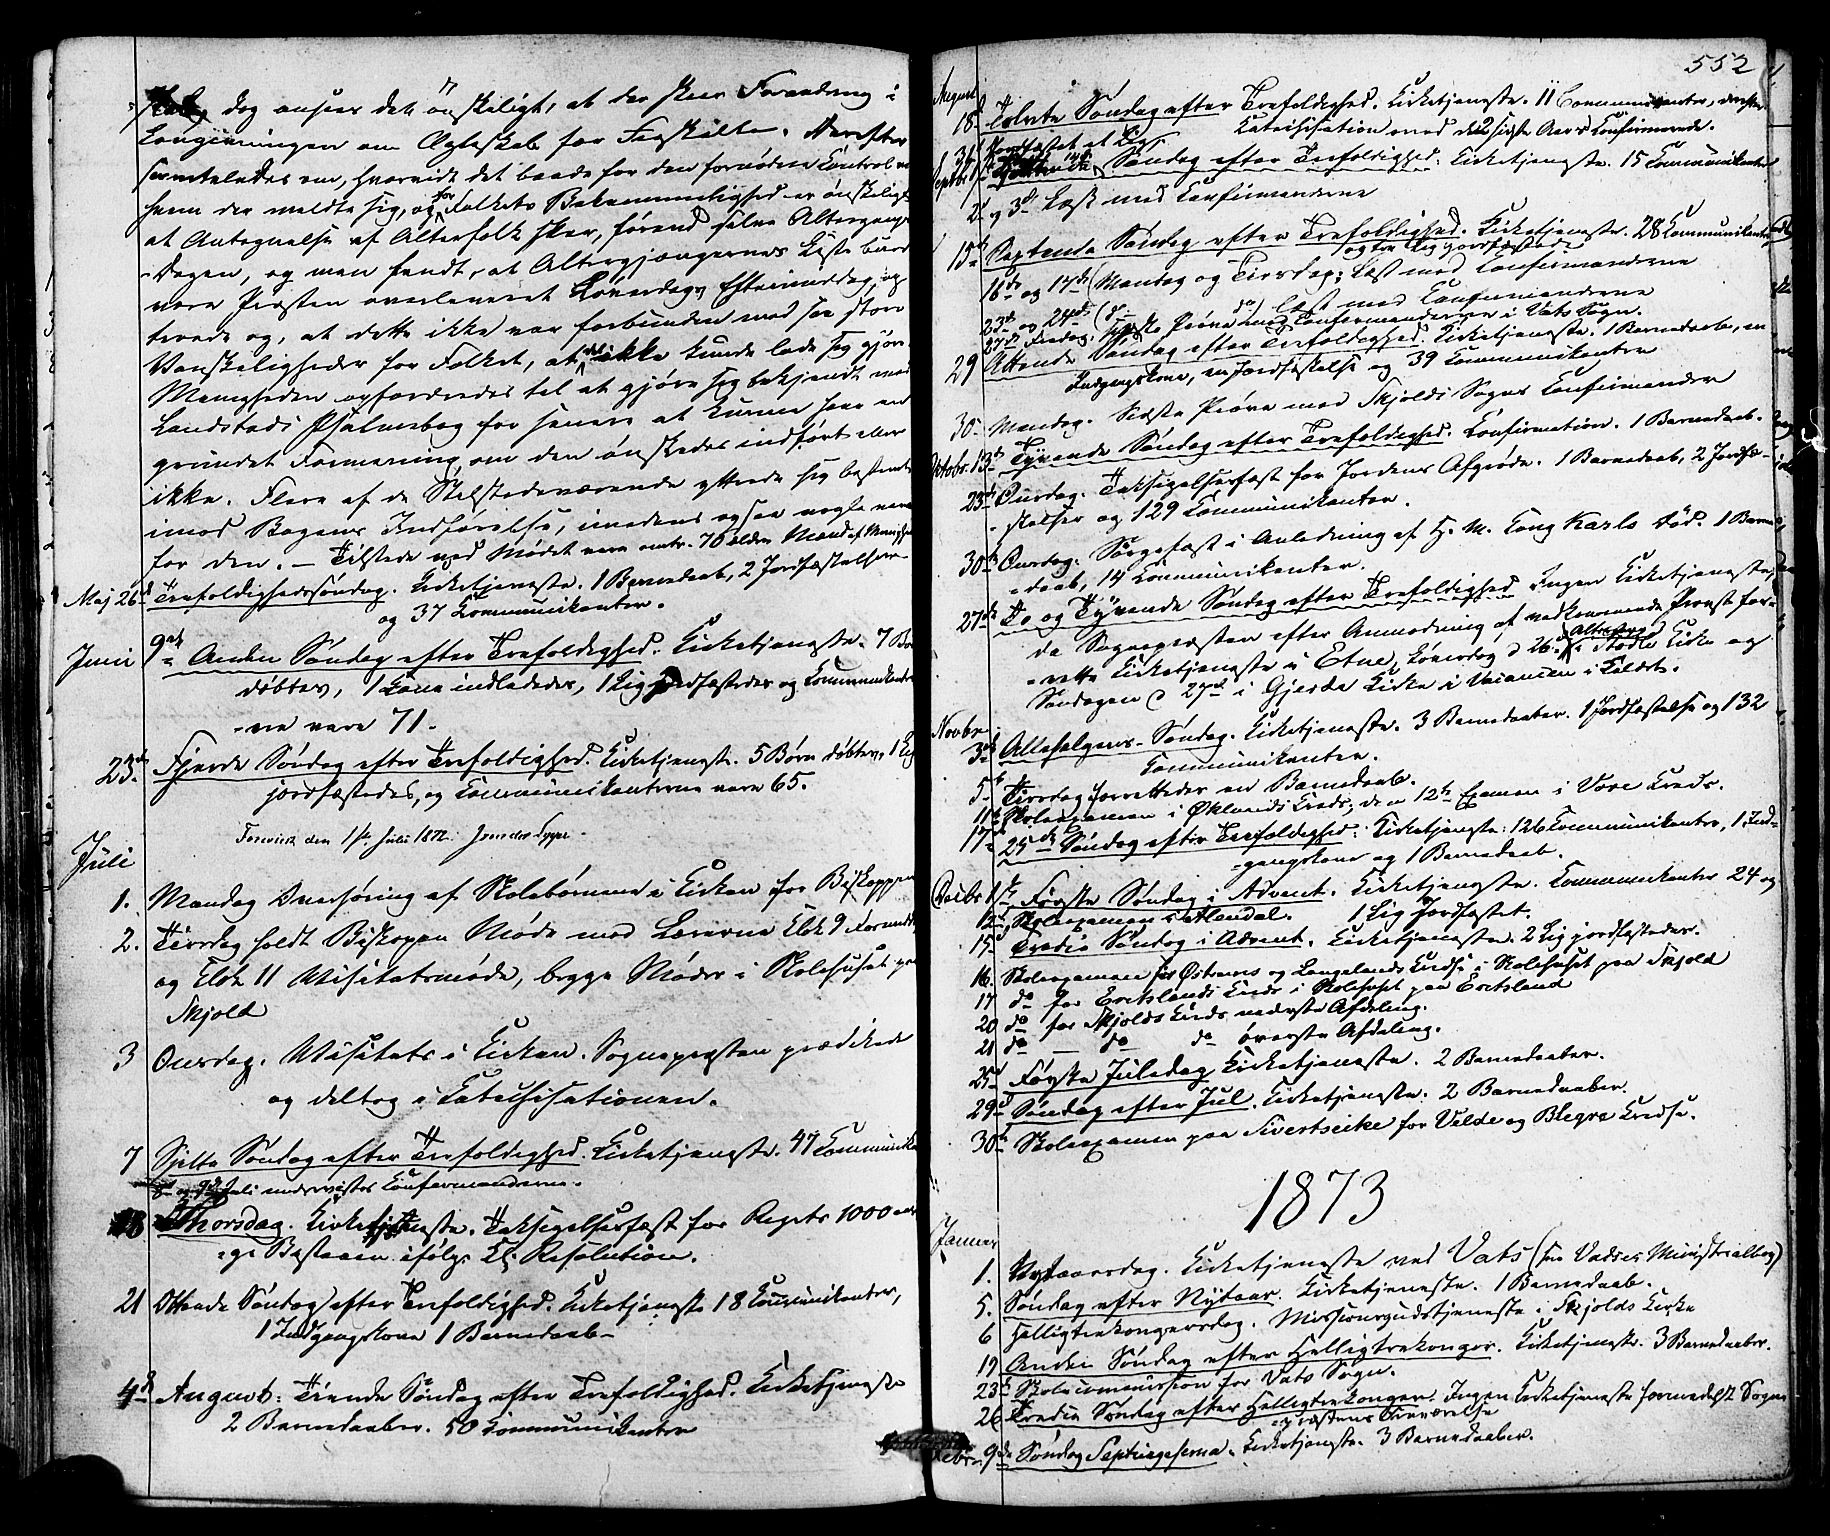 dog ansees det ønskeligt, at der skeer Forandring i
Lovgivningen om Ægteskab for Fraskilte. Derefter
samtaledes om, hvorvidt det baade for den fornødne Control med
hvem der meldte sig, og for Folkets Bekvemmelighed er ønskeligt
at Antegnelse af Alterfolk skeer, førend selve Altergangs-
-Dagen, og man fandt, at Altergjængernes Liste burde
være Præsten overleveret Løverdags Eftermiddag, og
troede og, at dette ikke var forbunden med saa store
Vanskeligheder for Folket, at det ikke kunde lade sig gjøre
Menigheden opfordredes til at gjøre sig bekjendt med
Landstads Psalmebog for senere at kunne have en
grundet Formening, om den ønskedes indført eller
ikke. Flere af de Tilstedeværende yttrede sig bestemt
imod Bogens Indførelse, imedens ogsaa nogle vare
for den. – Tilstede ved Mødet vare omtr. 70 ældre Mænd af Menigh.
Maj 26d Trefoldighedssøndag. Kirketjeneste. 1 Barnedaab, 2 Jordfæstelser
og 37 Kommunikanter.
Juni 9de Anden Søndag efter Trefoldighed. Kirketjeneste. 7 Børn
døbtes, 1 Kone indlededes, 1 Lig jordfæstedes og Kommunikanter-
-ne vare 71.
23de Fjerde Søndag efter Trefoldighed. Kirketjeneste. 5 Børn døbtes, 1 Lig
jordfæstedes, og Kommunikanterne vare 65.
den 1ste Juli 1872.
Juli
1. Mandag Overhøring af Skolebørnene i Kirken for Biskoppen
2. Tirsdag holdt Biskopen Møde med Lærerne Klok 9 Formidd.
og Klok 11 Visitatsmøde, begge Møder i Skolehuset paa
Skjold
3 Onsdag. Visitats i Kirken. Sognepræsten prædikede
og deltog i Katechisationen.
7 Sjette Søndag efter Trefoldighed. Kirketjeneste. 47 Kommunika
8de og 9de Juli undervistes Konfirmanderne.
18 Thorsdag. Kirketjeneste. Taksigelsesfest for Rigets 1000 aar-
-ge Bestaaen ifølge Kl. Resolution.
21 Ottende Søndag efter Trefoldighed. Kirketjeneste 18 Kommunikanter,
1 Indgangskone 1 Barnedaab–
4de August: Tiende Søndag efter Trefoldighed. Kirketjeneste
2 Barnedaaber. 50 Kommunikanter
552
August
18de Tolvte Søndag efter Trefoldighed. Kirketjeneste. 11 Communikanter,
Katechisation med de 2 sidste Aars Konfirmerede.
31 Jordfæstet et Lig
Septbr. 1 14de Søndag efter Trefoldighed. Kirketjeneste. 15 Kommunikanter
2d og 3d Læst med Konfirmanderne
15de Sextende Søndag efter Trefoldighed. Kirketjeneste. 28 Kommunikanter
og to Lig jordfæstede
16de og 17de (Mandag og Tirsdag) Læst med Konfirmanderne
23de og 24de (do do) Læst med Konfirmanderne
27de Fredag. Prøve med Konfirmanderne i Vats Sogn.
29 Attende Søndag efter Trefoldighed. Kirketjeneste. 1 Barnedaab, en
Indgangskone, en Jordfæstelse og 39 Kommunikanter
30 Mandag. Sidste Prøve med Skjolds Sogns Konfirmander
Octobr. 13de Tyvende Søndag efter Trefoldighed. Konfirmation. 1 Barnedaab.
23de Onsdag. Taksigelsesfest for Jordens Afgrøde. 1 Barnedaab, 2 Jordfæ-
-stelser og 129 Kommunikanter.
30de Onsdag. Sørgefest i Anledning af H. M. Kong Karls Død. 1 Barne
-daab, 14 Kommunikanter.
27de To og Tyvende Søndag efter Trefoldighed Ingen Kirketjeneste,
da Sognepræsten efter Anmodning af vedkommende Provst for-
-rettede Kirketjeneste i Etne, Løverdag d 26. Altergang i Stødle Kirke og
Søndagen d 27de i Gjerde Kirke i Vacancen i Kaldet.
Novbr
3de Allehelgens-Søndag. Kirketjeneste. 3 Barnedaaber. 1 Jordfæstelse og 132
Kommunikanter.
5te Tirsdag forrettedes en Barnedaab.
11te Skoleexamen i Øklands Kreds; den 12te Examen i Vore Kreds.
17de 25de Søndag efter Trefoldighed: Kirketjeneste: 126 Kommunikanter, 1 Ind-
-gangskone og 1 Barnedaab.
Decbr 1ste Første Søndag i Advent. Kirketjeneste. Kommunikanter 24 og
1 Lig Jordfæstet.
12te Skoleexamen i Alendal.
15de Tredie Søndag i Advent. Kirketjeneste. 2 Lig jordfæstedes.
16. Skoleexamen for Østrems og Langelands Kredse i Skolehuset paa Skjold
17 do for Eretslands Kreds i Skolehuset paa Eretsland
20 do for Skjolds Kreds nederste Afdeling.
21 do — do do øverste Afdeling.
25de Første Juledag Kirketjeneste. 2 Barnedaaber.
29de Søndag efter Jul. Kirketjeneste. 2 Barnedaaber.
30te Skoleexamen paa for Velde og Kredse.
1873
Januar
1. Nytaarsdag. Kirketjeneste ved Vats (see Vatses Ministrialbog)
5. Søndag efter Nytaar. Kirketjeneste. 1 Barnedaab.
6 Helligtrekongersdag. Missionsgudstjeneste i Skjolds Kirke
19 Anden Søndag efter Helligtrekonger. Kirketjeneste. 3 Barnedaaber.
23de Skolecommission for Vats Sogn.
26 Tredie Søndag efter Helligtrekonger. Ingen Kirketjeneste formedelst Sogne-
-præstens Fraværelse
Febr. 9de Søndag Septuagesima. Kirketjeneste. 3 Barnedaaber.